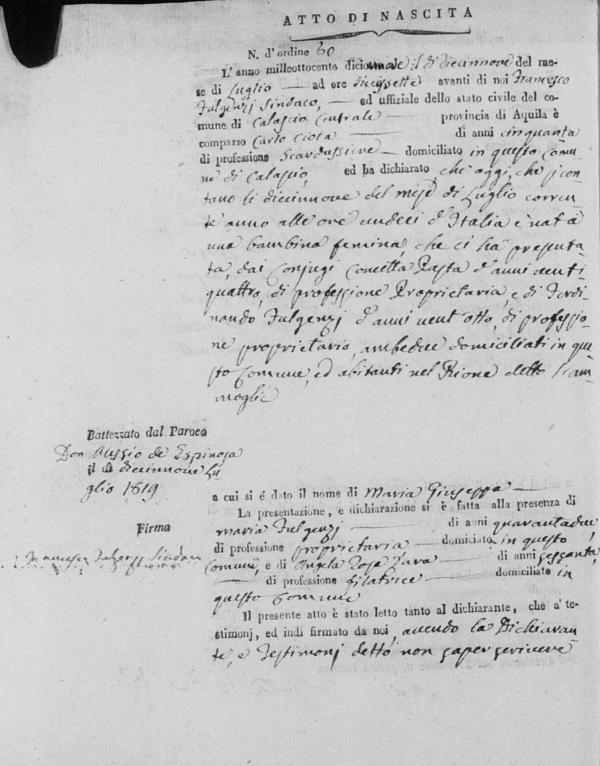 ATTO DI NASCITA
N. d'ordine 60
L'anno milleottocento diciannove il di diecinnove del me-
se di Luglio — ad ore diecissette avanti di noi Francesco
Fulgenzj Sindaco, — ed uffiziale dello stato civile del co-
mune di Calascio Centrale — provincia di Aquila è
comparso Carlo Ciota — di anni cinquanta
di professione Scardassiere — domiciliato in questo Comu-
ne di Calascio, ed ha dichiarato che oggi, che si con-
tano li diecinnove del mese di Luglio corren-
te anno alle ore undeci d'Italia è nata
una bambina femina, che ci ha presenta-
ta, dai Conjugi Concetta Rasta d'anni venti
quattro, di professione Proprietaria e di Ferdi-
nando Fulgenzj d'anni vent'otto, di professio-
ne proprietario, ambedue domiciliati in que-
sto Comune, ed abitanti nel Rione detto
Battezzato dal Paroco
Don Alessio de Espinosa
il dì diecinnove Lu
glio 1819
a cui si é dato il nome di Maria Giuseppa —
La presentazione, e dichiarazione si è fatta alla presenza di
Firma
Maria Fulgenzj — di anni quarantadue
di professione proprietaria — domiciliato in questo
Francesco Fulgenzj Sindaco
Comune, e di Angela Rosa Zara — di anni sessanta,
— di professione filatrice — domiciliato in
questo Comune
Il presente atto è stato letto tanto al dichiarante, che a' te-
stimonj, ed indi firmato da noi, avendo la Dichiaran-
te, e Testimonj detto non saper scrivere